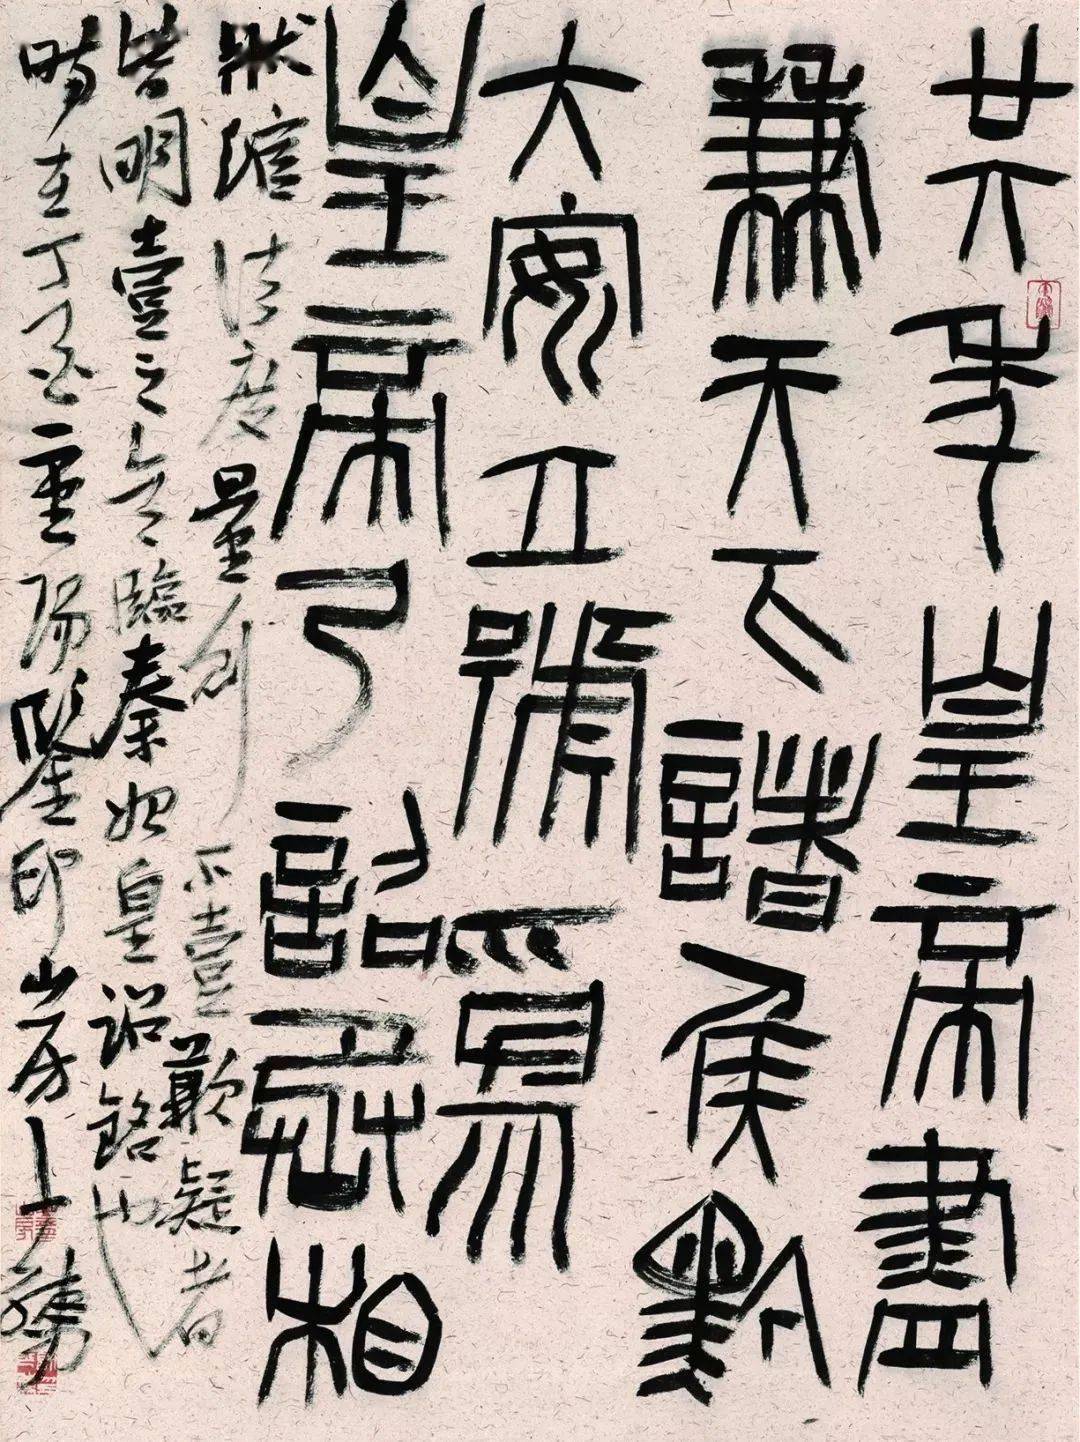 廿六年皇帝盡
兼天下諸侯黔
大安立號爲
皇帝乃詔丞相
狀綰法度量則不壹歉疑者
皆明壹之今臨秦始皇詔銘也
時在丁酉重陽鑿印山房